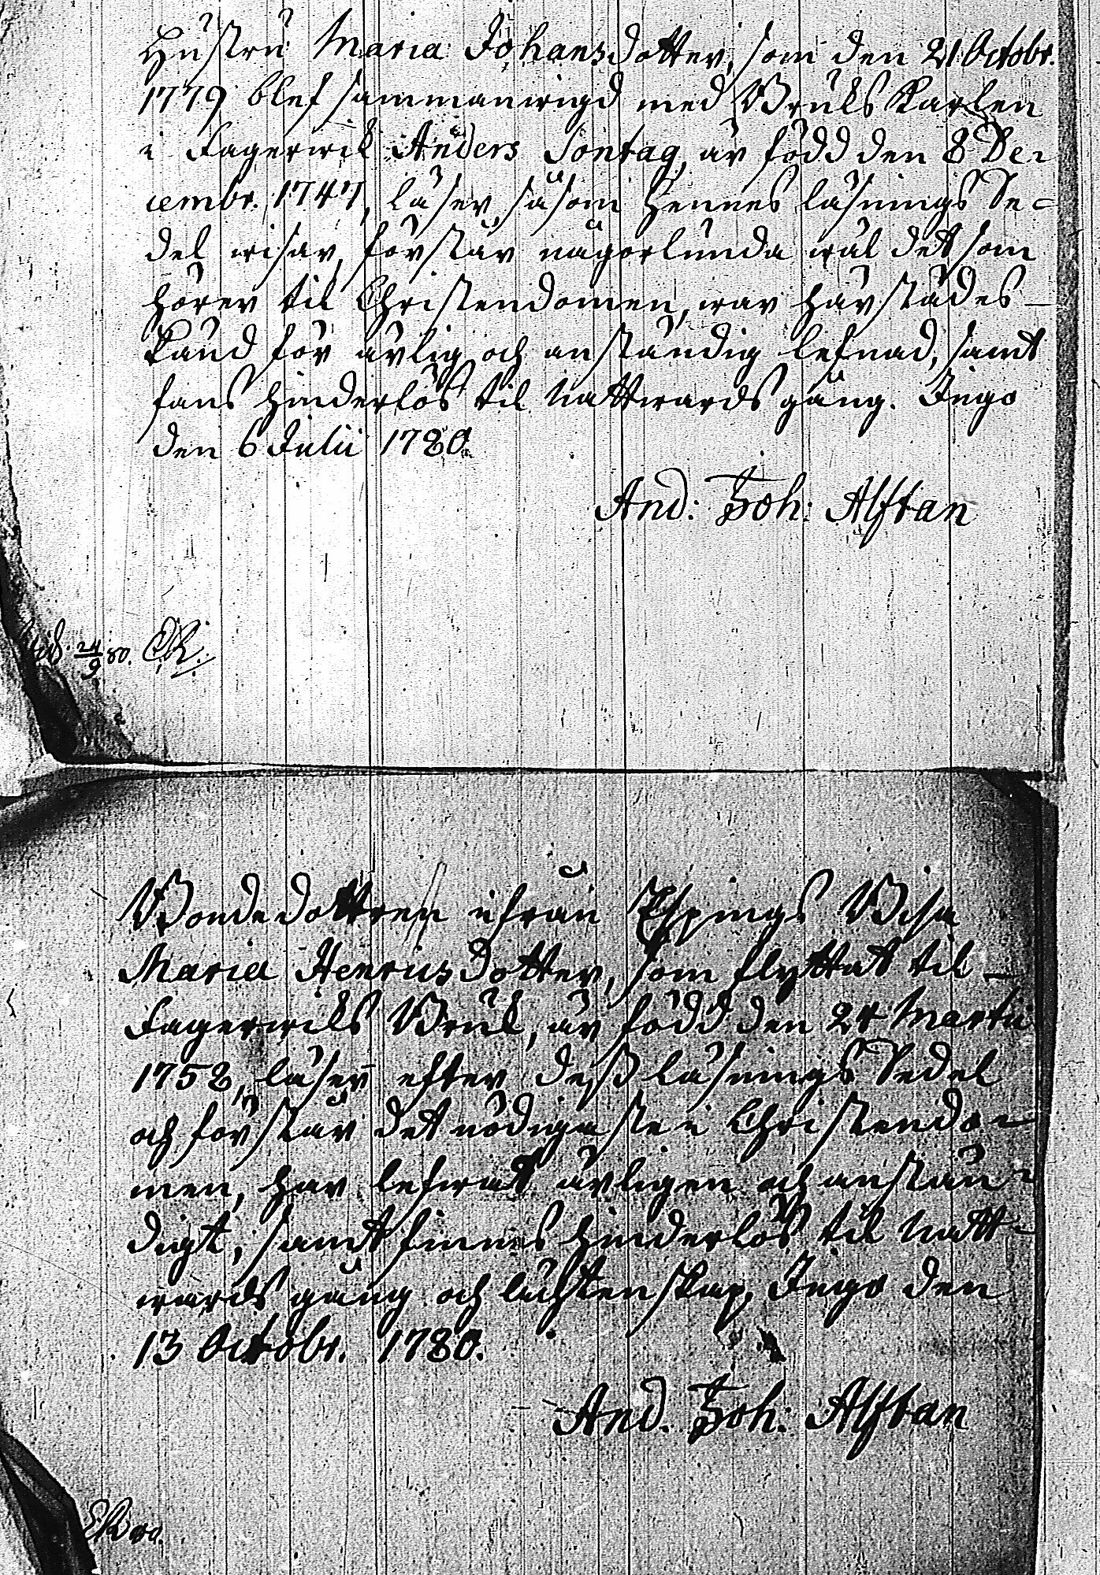 Hustru Maria Johansdotter, som den 21 Octobr.
1779 blef sammanwigd med Bruks Karlen
i Fagerwik Anders Sontag, är född den 8 De-
cembr. 1747, läser, såsom hennes läsnings Se-
del wisar, förstår någorlunda wäl det som
hörer til Christendomen, war härstädes
känd för ärlig och anständig lefnad, samt
fans hinderlös til Nattwards gång. Ingo
den 6 Julii 1780.
And: Joh: Alftan
24/9 80. CR.
Bondedottren ifrån Espings Bisa
Maria Henricsdotter, som flyttat til
Fagerwiks Bruk, är född den 24 Martii
1752, läser efter dess läsnings Sedel
och förstår det nödigaste i Christendo-
men, har lefwat ärligen och anstän-
digt, samt finnes hinderlös til Natt-
wards gång och lächtenskap, Ingo den
13 Octobr. 1780.
And. Joh: Alftan